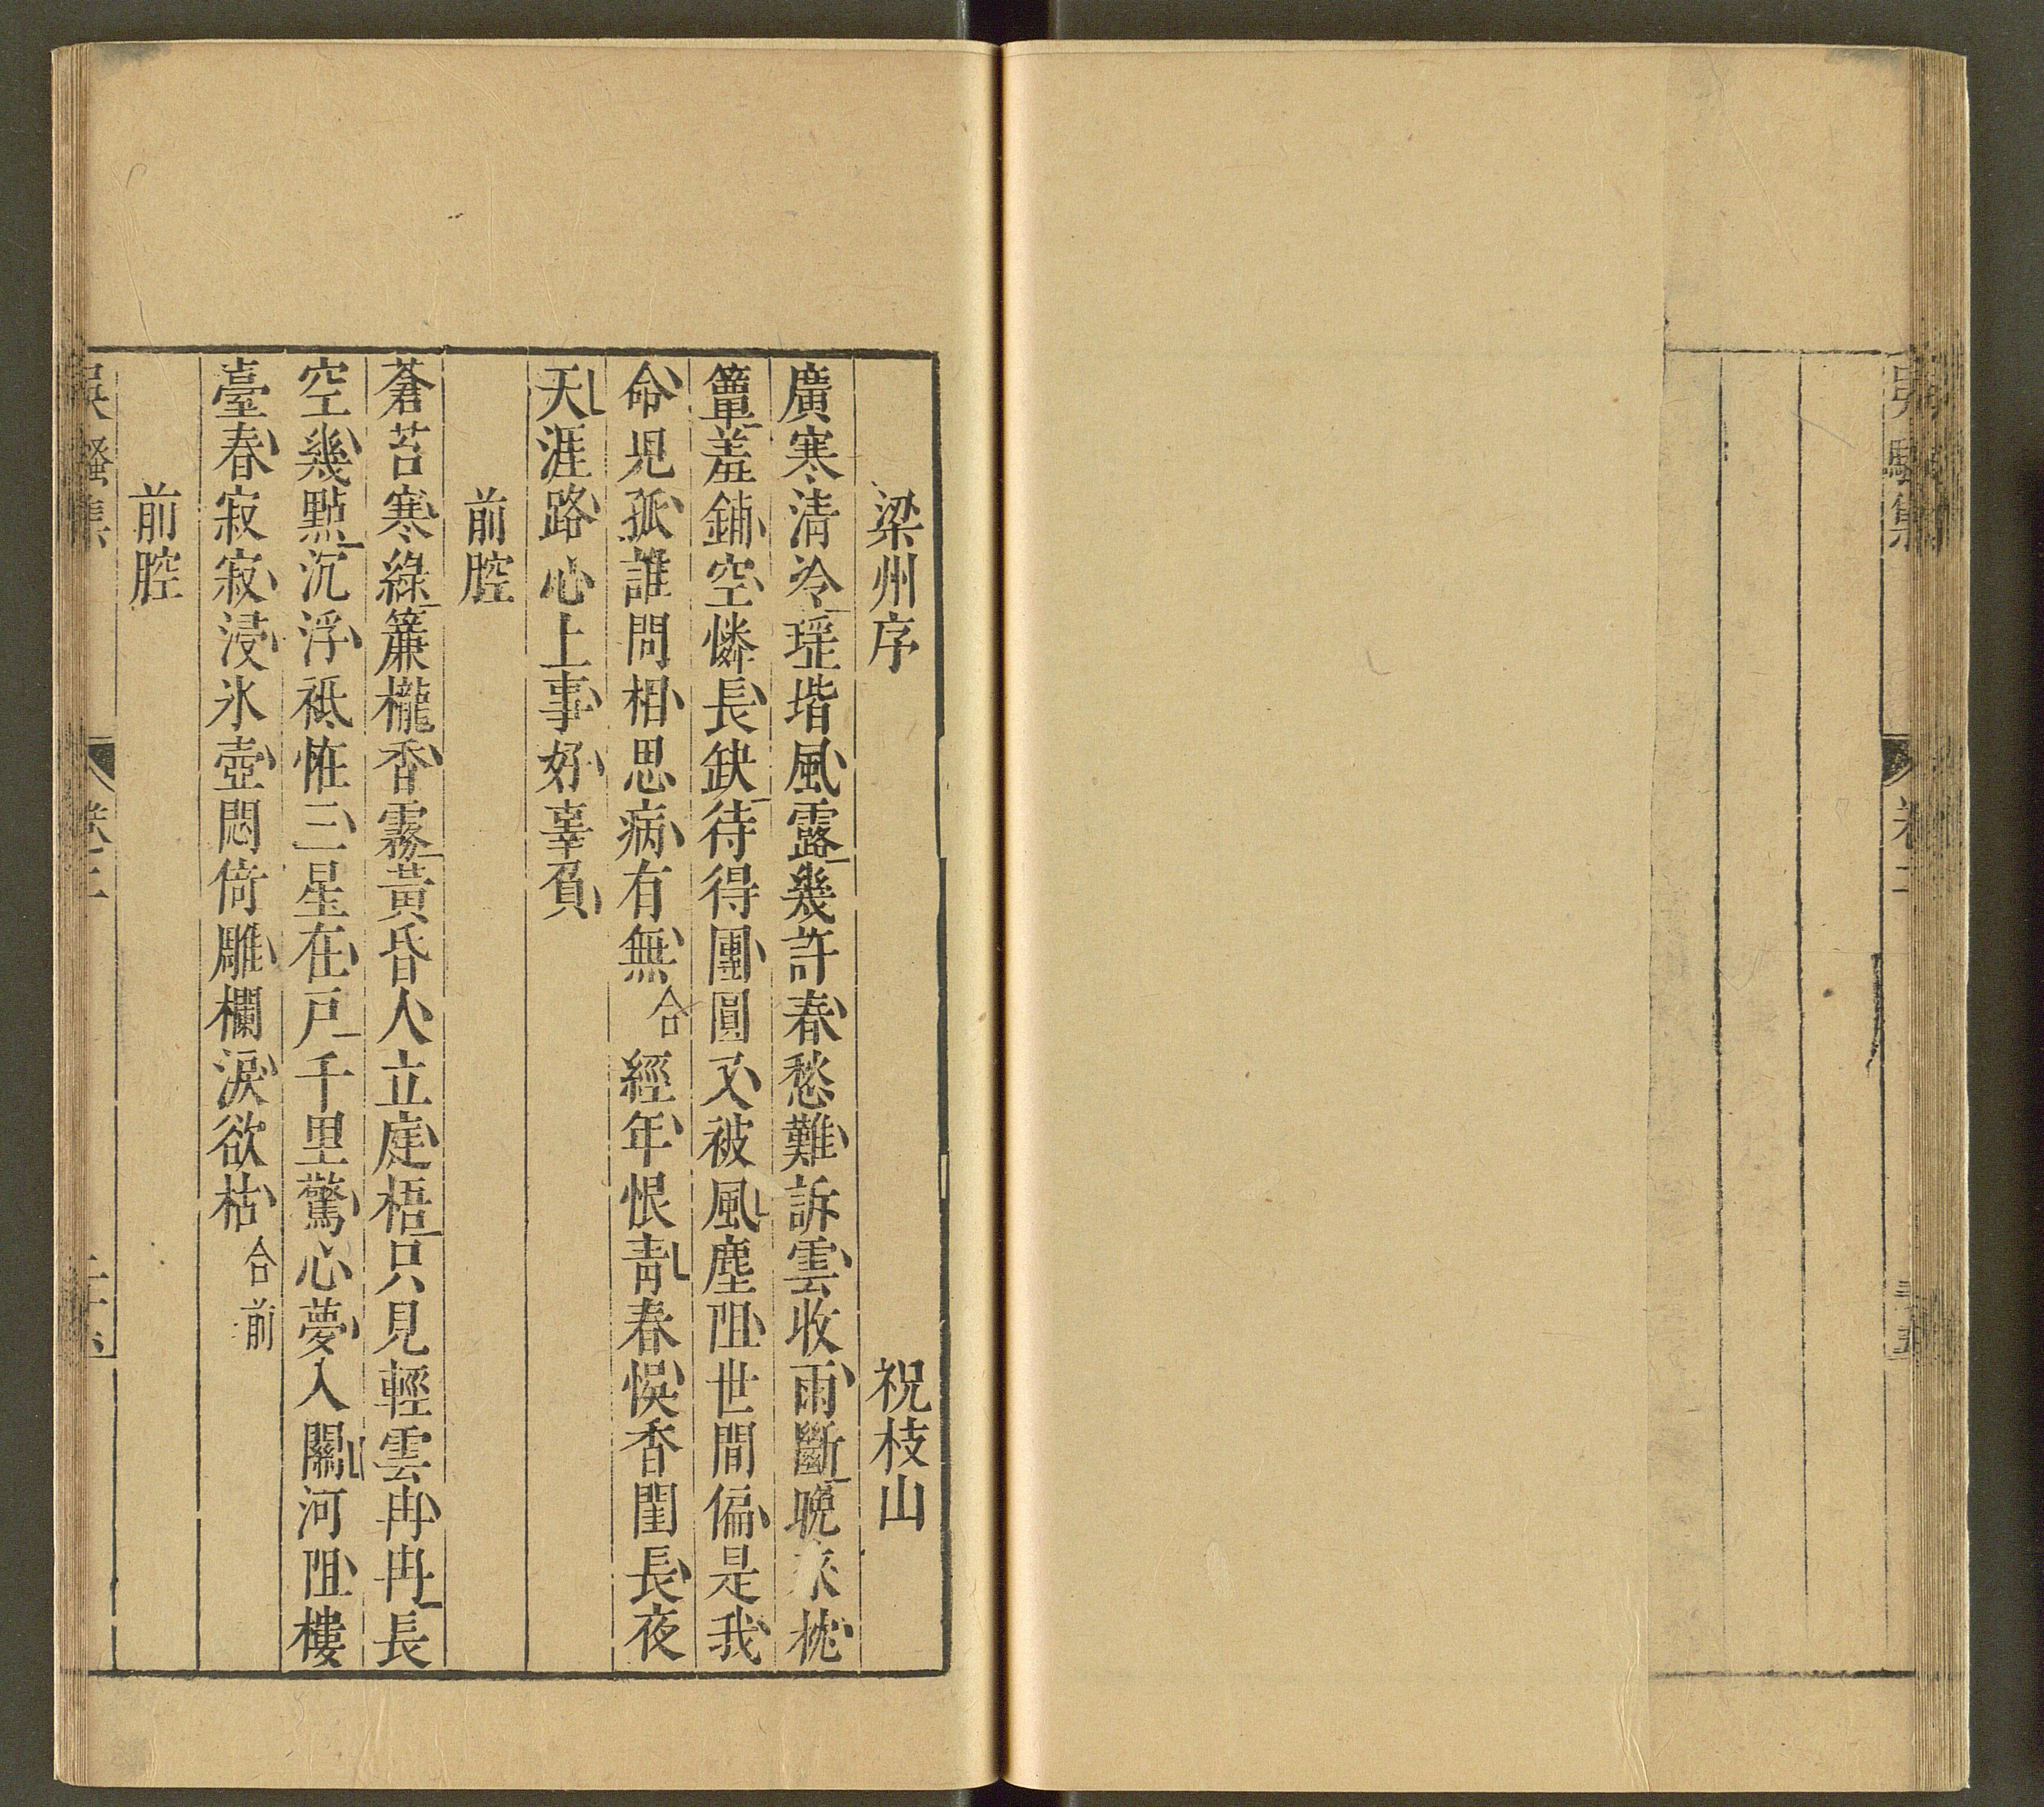 吳騷集
卷二
梁州序　祝枝山
廣寒清冷瑶堦風露幾許春愁難訴雲收雨斷晚來枕
簟羞鋪空憐長缺待得團圓又被風塵阻世間偏是我
命児孤誰問相思病有無合經年恨青春悞香閨長夜
天涯路心上事好辜負
前腔
蒼苔寒綠簾櫳香霧黃昏人立庭梧只見輕雲冉冉長
空幾點沉浮祗恠三星在戸千里驚心夢入關河阻樓
臺春寂寂浸氷壺悶倚雕欄淚欲枯合前
前腔
吳騷集
卷二